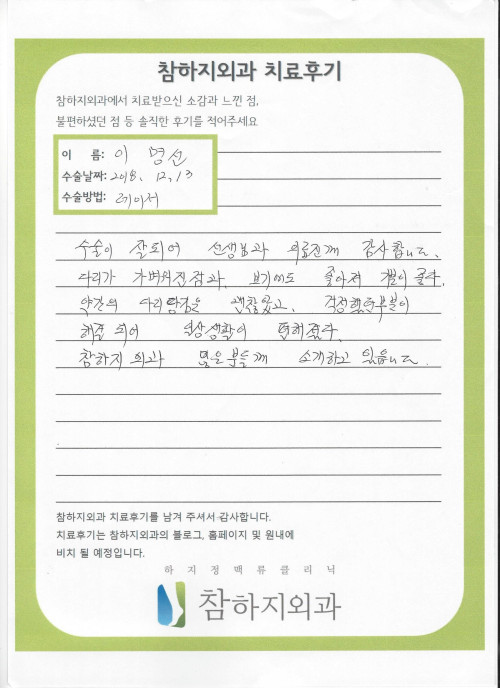 참하지외과 치료후기
참하지외과에서 치료받으신 소감과 느낀 점,
불편하셨던 점 등 솔직한 후기를 적어주세요
이 름: 이 명선
수술날짜: 2018. 12. 13
수술방법: 레이저
수술이 잘되어 선생님과 의료진께 감사합니다.
다리가 가벼워진점과, 보기에도 좋아져 좋다.
약간의 다리땅김은 괜찮았고, 걱정했던부분이
해결 되어 일상생활이 편해졌다.
참하지 외과 많은 분들께 소개하고 있읍니다.
참하지외과 치료후기를 남겨 주셔서 감사합니다.
치료후기는 참하지외과의 블로그, 홈페이지 및 원내에
비치 될 예정입니다.
하지정맥류클리닉
참하지외과